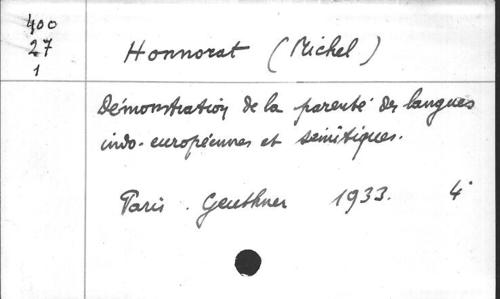 400
27
1
Honnorat (Michel)
Démonstration de la parenté des langues
indo-européennes et sémitiques.
Paris. Geuthner 1933. 4°